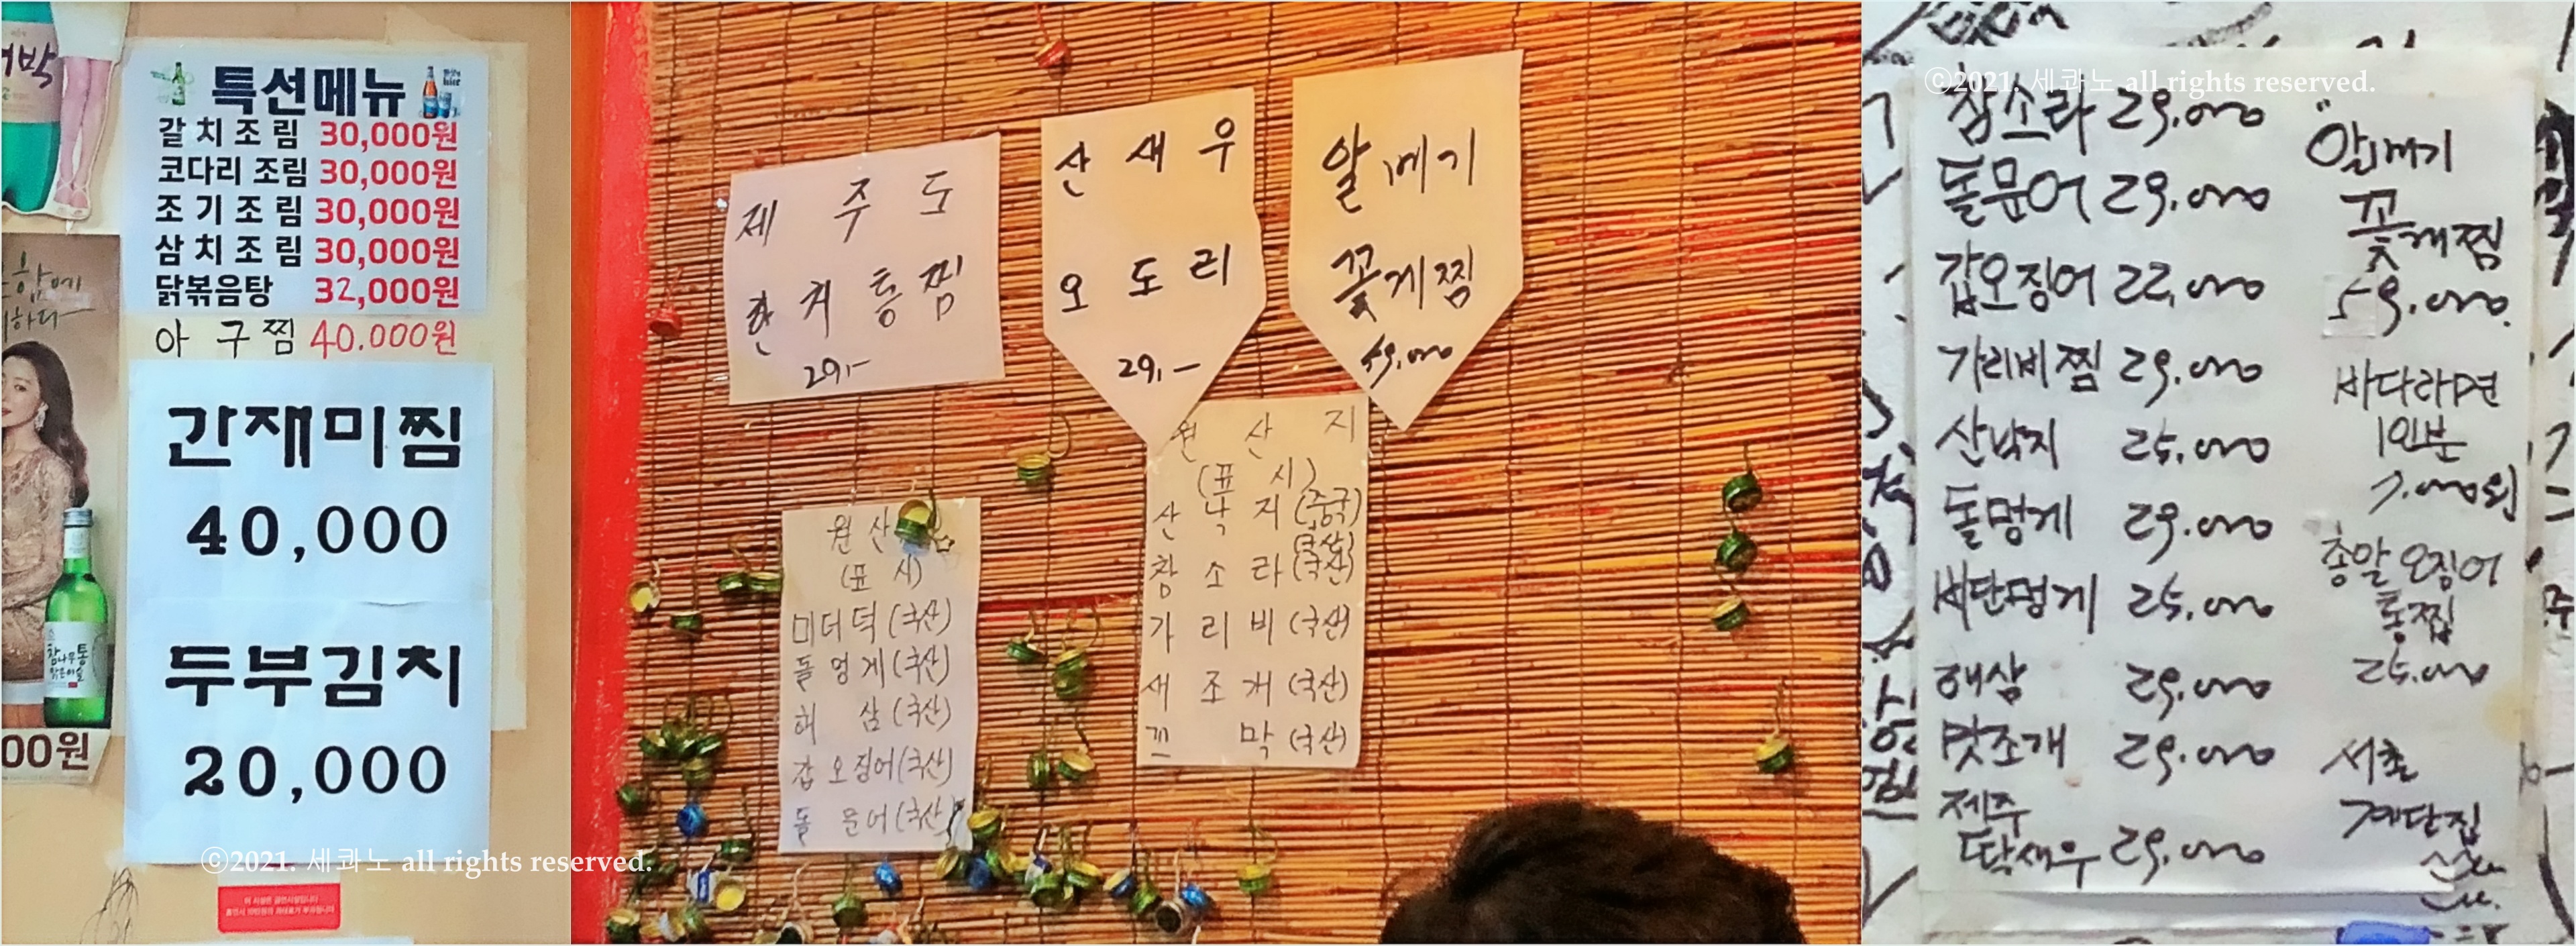 특선메뉴
갈치조림 30,000원
코다리 조림 30,000원
조기조림 30,000원
삼치조림 30,000원
닭볶음탕 32,000원
아구찜 40.000원
간재미찜
40,000
두부김치
20,000
00원
ⓒ2021. 세콰노 all rights reserved.
제주도
한치통찜
29,-
산새우
오도리
29,-
알배기
꽃게찜
59,000
원산지
(표시)
산낙지(중국)
참소라(국산)
가리비(국산)
새조개(국산)
꼬막(국산)
원산
(표시)
미더덕(국산)
돌멍게(국산)
해삼(국산)
갑오징어(국산)
돌문어(국산)
ⓒ2021. 세콰노 all rights reserved.
참소라 29,000
돌문어 29,000
갑오징어 22,000
가리비찜 29,000
산낙지 25,000
돌멍게 29,000
비단멍게 25,000
해삼 29,000
맛조개 29,000
제주
딱새우 29,000
알배기
꽃게찜
59,000
바다라면
1인분
7,000원
총알오징어
통찜
25,000
서촌
계단집